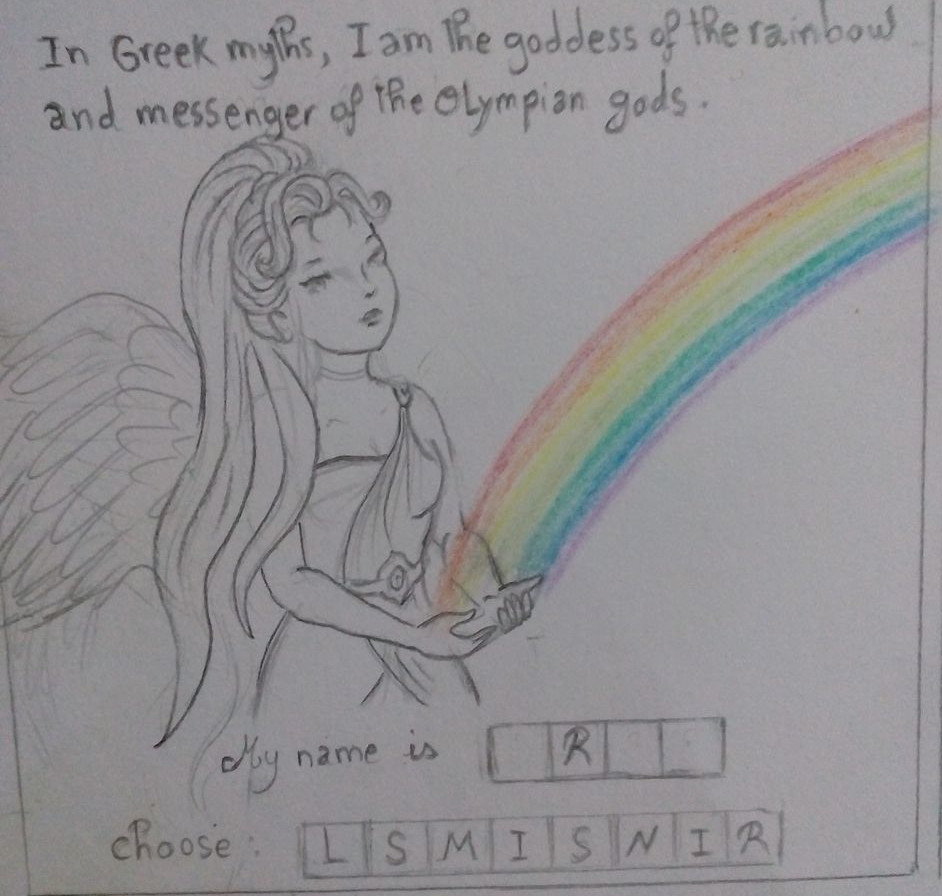 In Greek myths, I am the goddess of the rainbow
and messenger of the Olympian gods.
My name is R
choose: L S M I S N I R